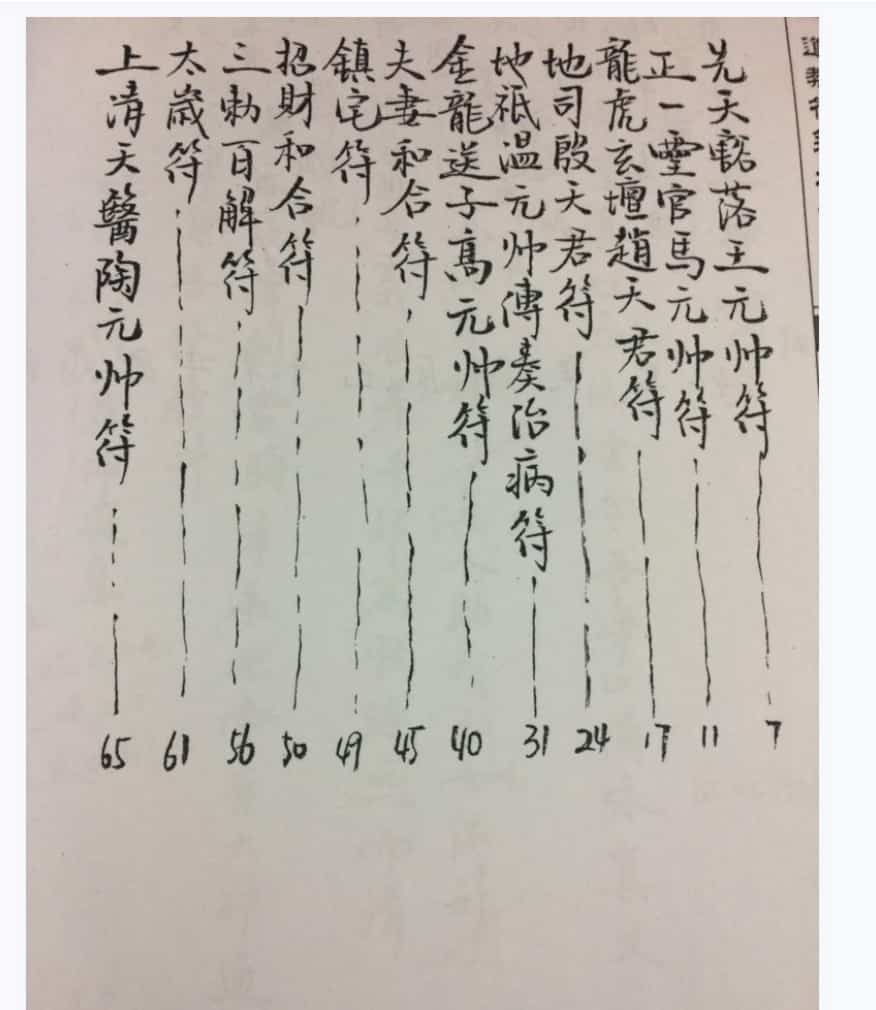 先天豁落王元帅符 7
正一靈官馬元帅符 11
龍虎玄壇趙天君符 17
地司殷天君符 24
地祇温元帅傳奏治病符 31
金龍送子高元帅符 40
夫妻和合符 45
鎮宅符 49
招財和合符 50
三勅百解符 56
太歲符 61
上清天醫陶元帅符 65